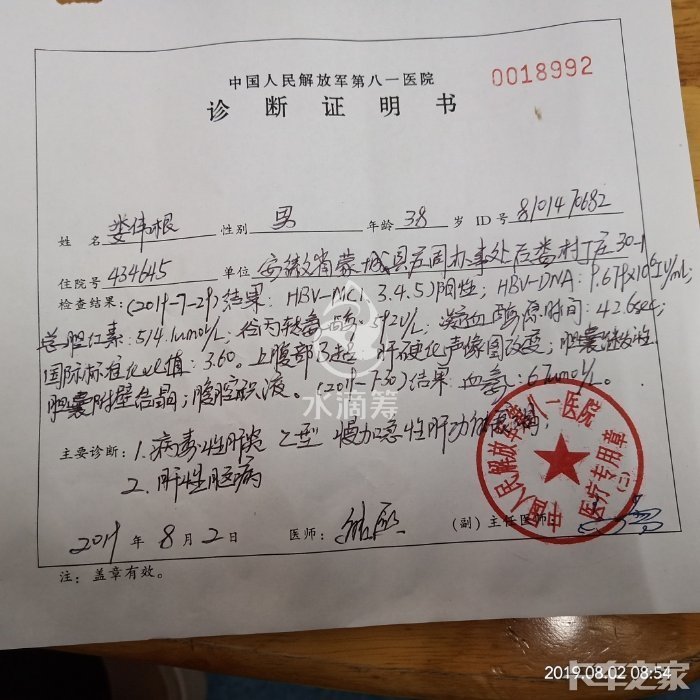 中国人民解放军第八一医院
0018992
诊断证明书
姓名 娄伟根 性别 男 年龄 38 岁 ID号 8101470682
住院号 434645 单位 安徽省蒙城县 办事处 村 庄30-1
检查结果:(2019-7-29)结果: HBV-M(1.3.4.5)阳性; HBV-DNA: 9.679×10⁶IU/mL;
总胆红素: 514.1umol/L; 谷丙转氨酶: 592U/L; 凝血酶原时间: 42.6sec;
国际标准化比值: 3.60. 上腹部B超: 肝硬化声像图改变; 胆囊继发性
胆囊附壁结晶; 腹腔积液。(2019-7-30)结果 血氨: 67umol/L。
水滴筹
主要诊断: 1. 病毒性肝炎 乙型 慢加急性肝功能衰竭;
2. 肝性脑病
中国人民解放军第八一医院
医疗专用章
(二)
2019年8月2日 医师: (副)主任医师:
注:盖章有效。
2019.08.02 08:54
卡车之家